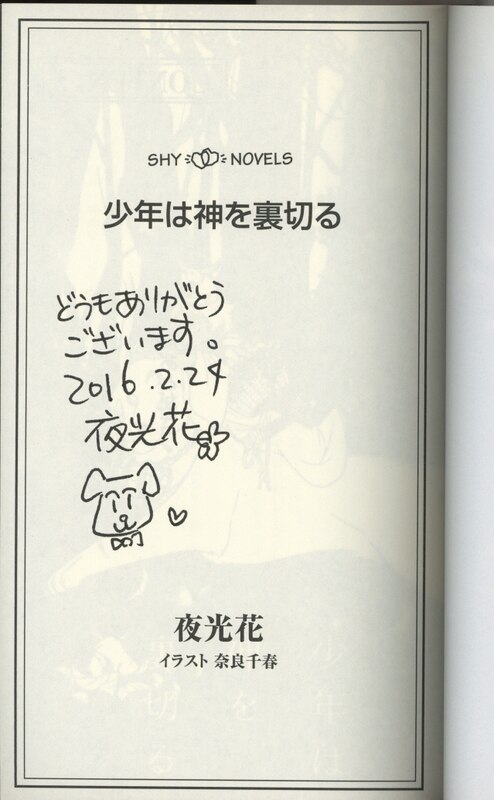 SHY NOVELS
少年は神を裏切る
どうもありがとう
ございます。
2016.2.24
夜光花
夜光花
イラスト 奈良千春